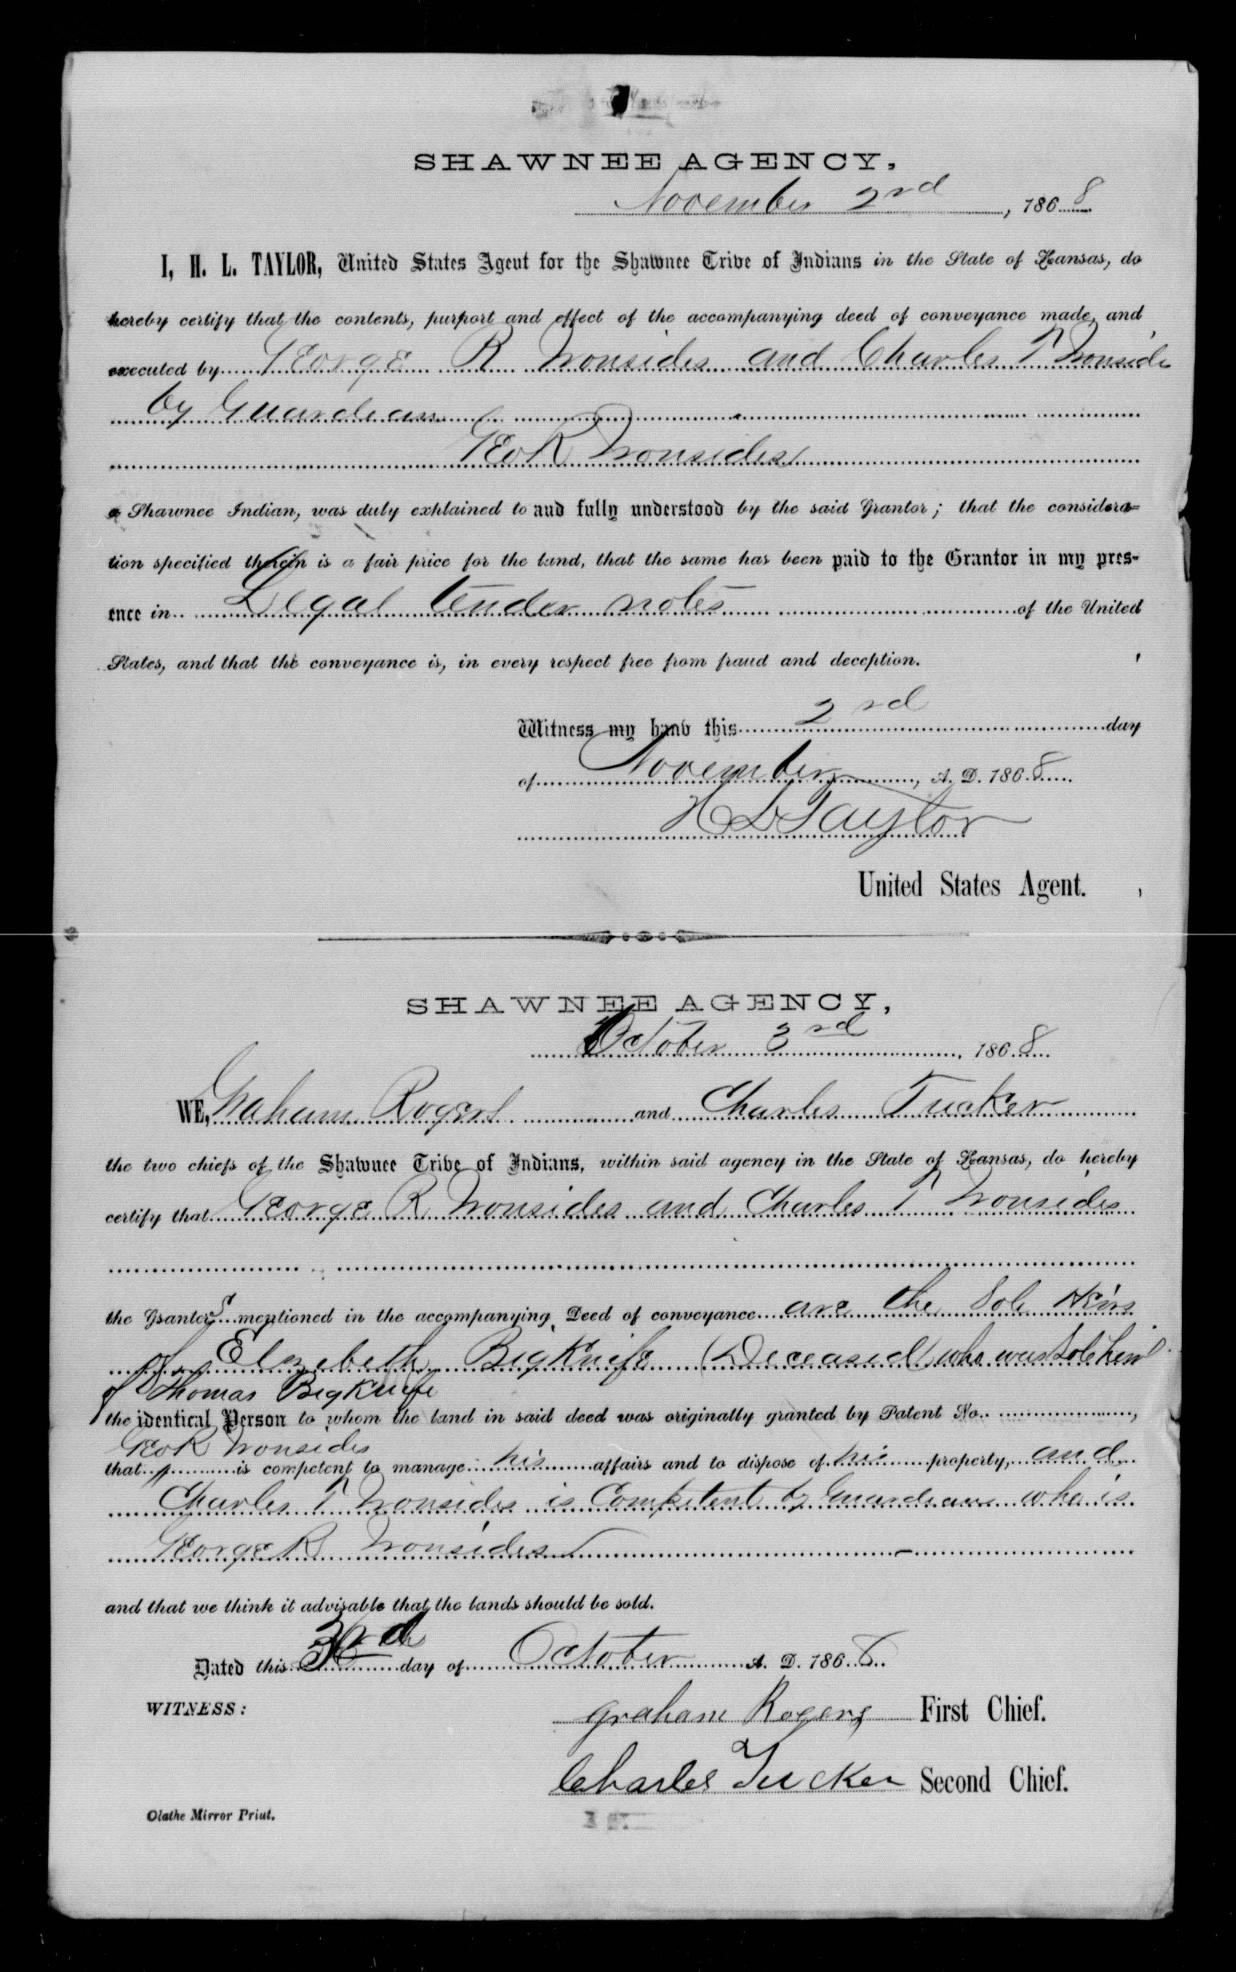 SHAWNEE AGENCY,
November 2nd, 1868
I, H. L. TAYLOR, United States Agent for the Shawnee Tribe of Indians in the State of Kansas, do
hereby certify that the contents, purport and effect of the accompanying deed of conveyance made, and
executed by George R Ironsides and Charles T Ironside
by Guardian
Geo R Ironsides
a Shawnee Indian, was duly explained to and fully understood by the said Grantor; that the considera-
tion specified therein is a fair price for the land, that the same has been paid to the Grantor in my pres-
ence in Legal tender notes of the United
States, and that the conveyance is, in every respect free from fraud and deception.
Witness my hand this 2nd day
of November, A. D. 1868
H L Taylor
United States Agent.
SHAWNEE AGENCY,
October 3rd, 1868
WE, Graham Rogers and Charles Tucker
the two chiefs of the Shawnee Tribe of Indians, within said agency in the State of Kansas, do hereby
certify that George R Ironsides and Charles T Ironsides
the Grantors mentioned in the accompanying Deed of conveyance are the Sole Heirs
of Elizebeth BigKnife (Deceased) who was Sole heir
of Thomas BigKnife
the identical Person to whom the land in said deed was originally granted by Patent No.
Geo R Ironsides
that is competent to manage his affairs and to dispose of his property, and
Charles T Ironsides is Competent by Guardian who is
George R Ironsides
and that we think it advisable that the lands should be sold.
Dated this 3rd day of October A. D. 1868
WITNESS:
Graham Rogers First Chief.
Charles Tucker Second Chief.
Olathe Mirror Print.